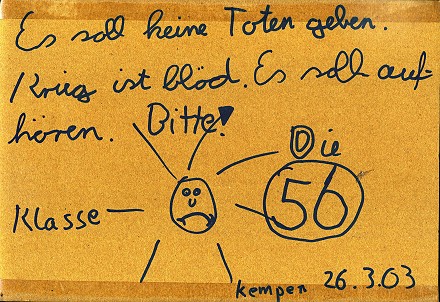 Es soll keine Toten geben.
Krieg ist blöd. Es soll auf-
hören. Bitte!
Die
Klasse
56
kempen 26.3.03